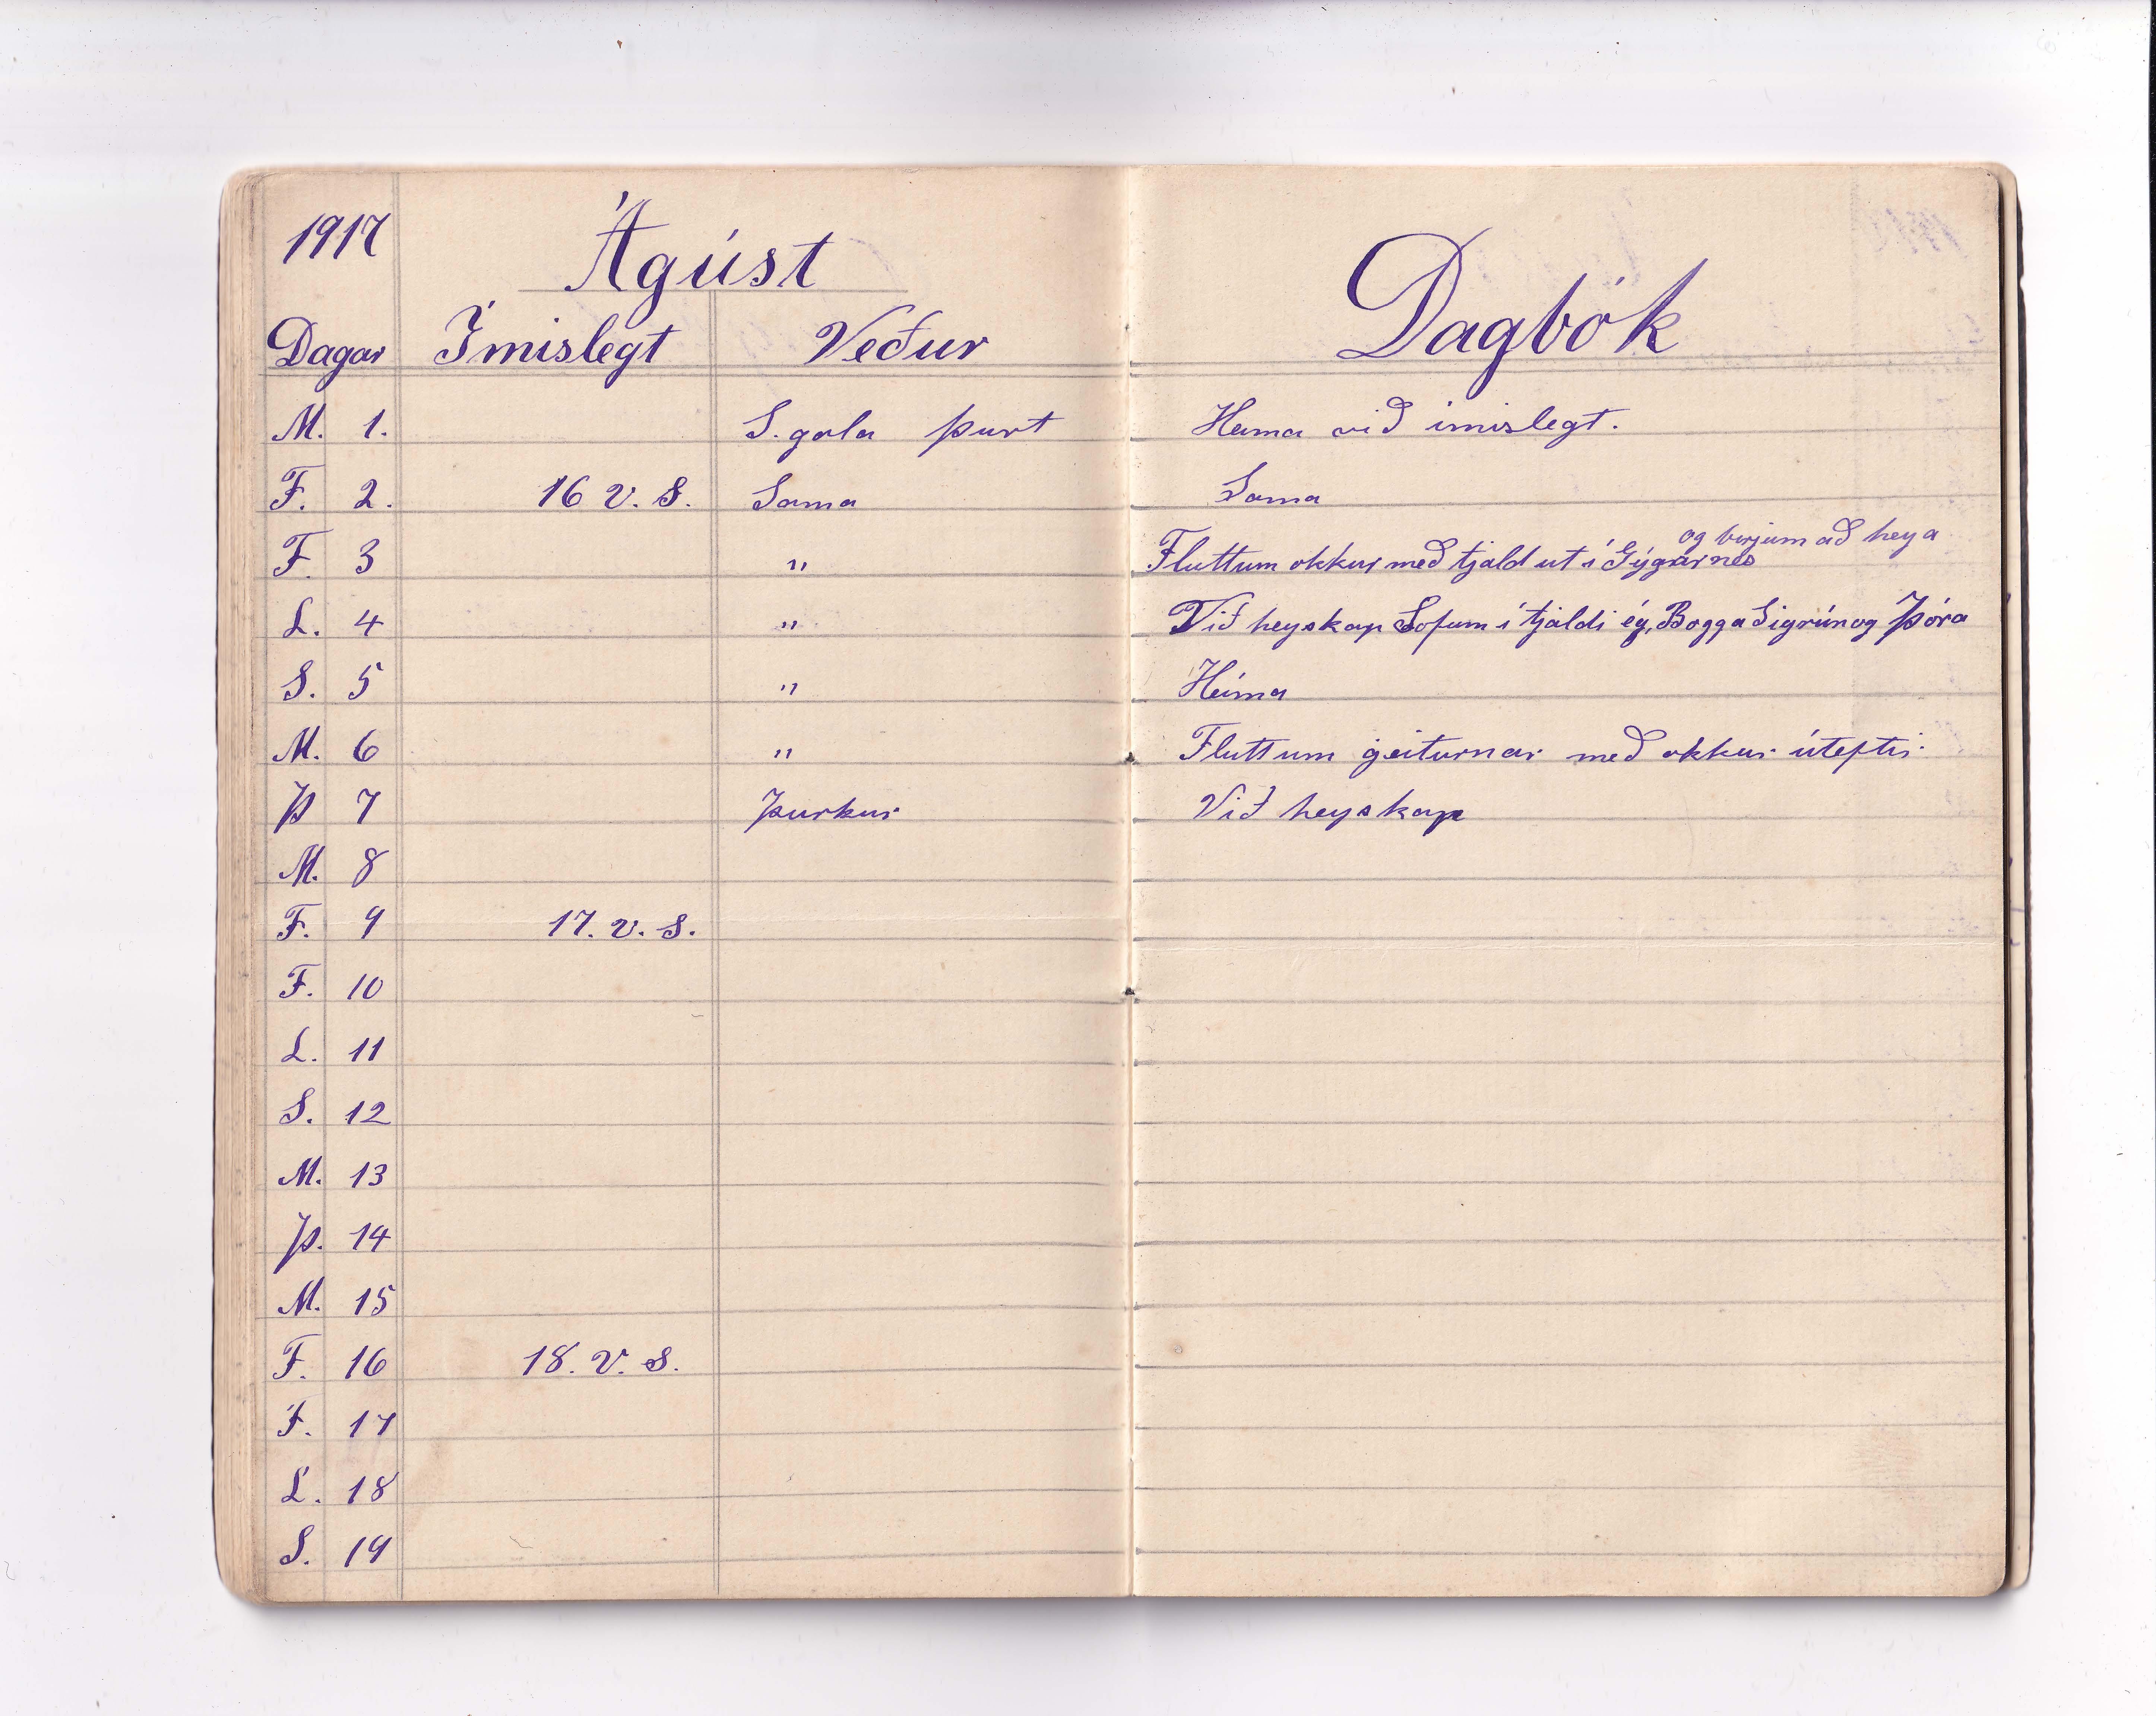 1917
Ágúst
Dagar Ímislegt Veður
Dagbók
M. 1. S. gola þurt Heima við ímislegt.
F. 2. 16 v. S. Sama Sama
og birjum að heya
F. 3 " Fluttum okkur með tjald út í Gýgarnes
L. 4 " Við heyskap Sofum í tjaldi ég, Bogga Sigrún og Þóra
S. 5 " Heima
M. 6 " Fluttum geiturnar með okkur úteptir
Þ 7 Þurkur Við heyskap
M. 8
F. 9 17. v. S.
F. 10
L. 11
S. 12
M. 13
Þ. 14
M. 15
F. 16 18. v. S.
F. 17
L. 18
S. 19